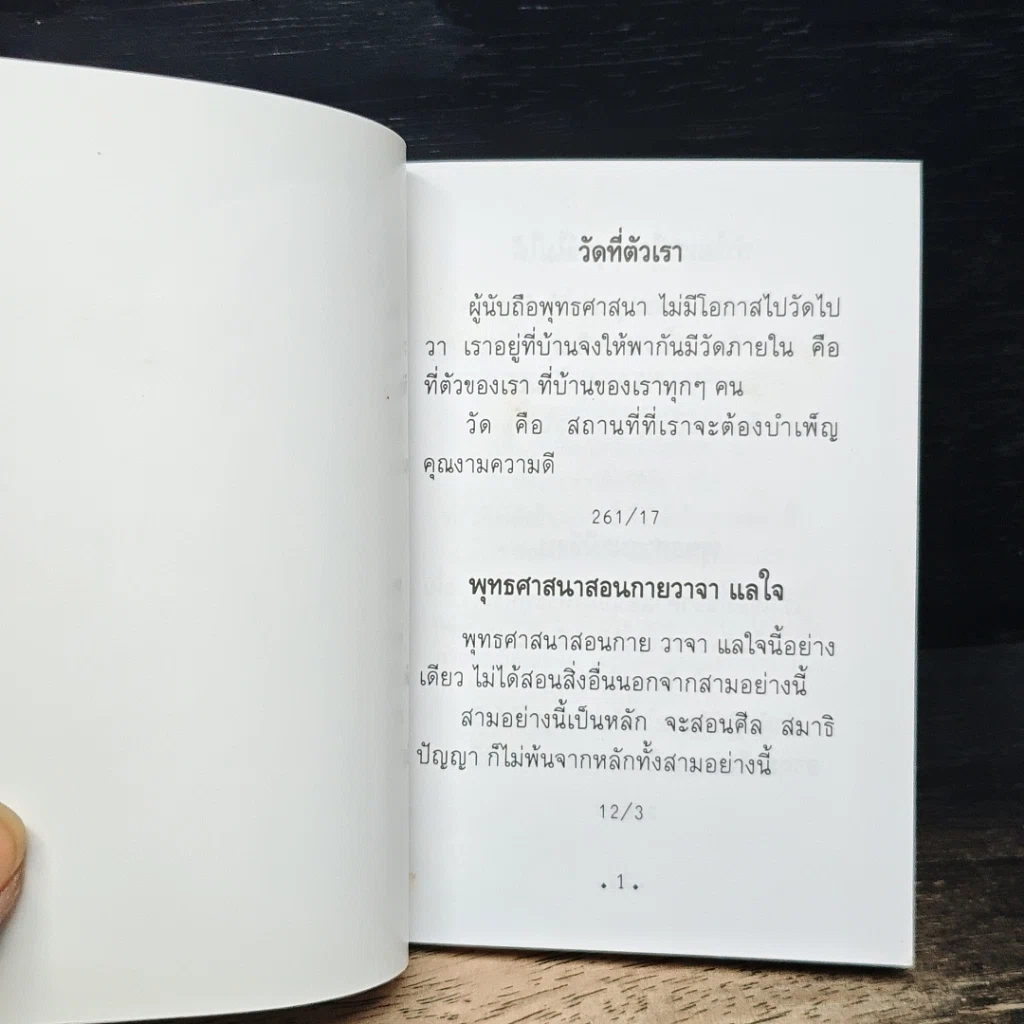 วัดที่ตัวเรา
ผู้นับถือพุทธศาสนา ไม่มีโอกาสไปวัดไป
วา เราอยู่ที่บ้านจงให้พากันมีวัดภายใน คือ
ที่ตัวของเรา ที่บ้านของเราทุกๆ คน
วัด คือ สถานที่ที่เราจะต้องบำเพ็ญ
คุณงามความดี
261/17
พุทธศาสนาสอนกายวาจา แลใจ
พุทธศาสนาสอนกาย วาจา แลใจนี้อย่าง
เดียว ไม่ได้สอนสิ่งอื่นนอกจากสามอย่างนี้
สามอย่างนี้เป็นหลัก จะสอนศีล สมาธิ
ปัญญา ก็ไม่พ้นจากหลักทั้งสามอย่างนี้
12/3
• 1 •